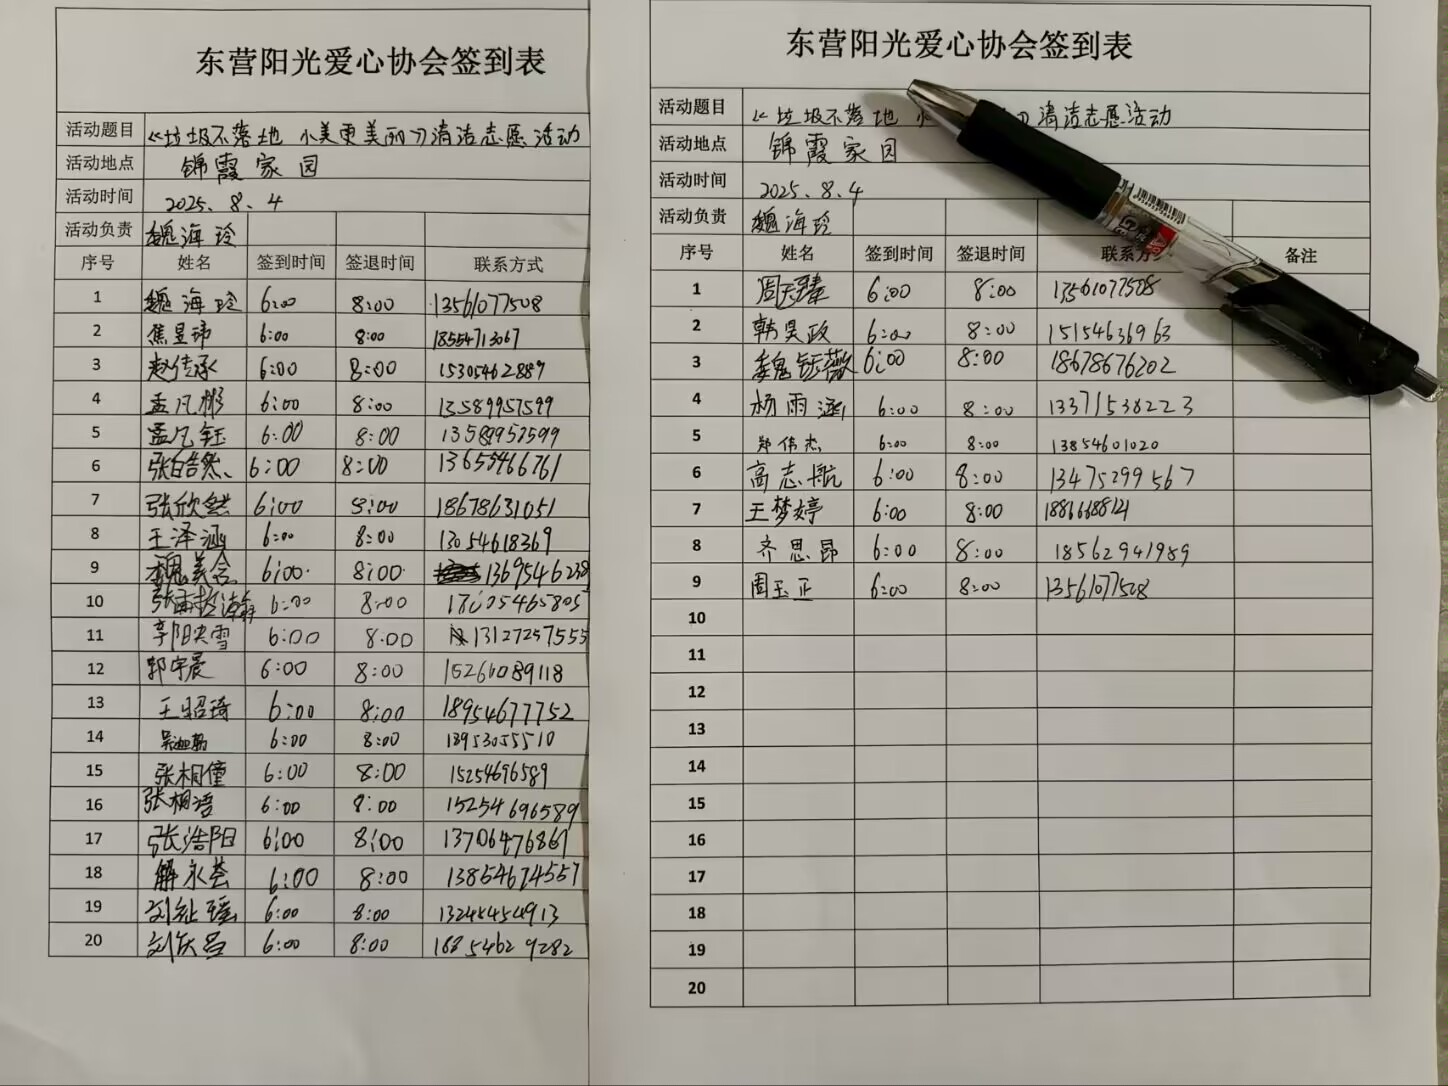 东营阳光爱心协会签到表
活动题目 《垃圾不落地 小美更美丽》清洁志愿活动
活动地点 锦霞家园
活动时间 2025、8、4
活动负责 魏海玲
序号 姓名 签到时间 签退时间 联系方式
1 魏海玲 6:00 8:00 13561077508
2 焦昱玮 6:00 8:00 18554713067
3 赵传承 6:00 8:00 15305462889
4 孟凡彬 6:00 8:00 13589957599
5 孟凡钰 6:00 8:00 13589957599
6 张皓然 6:00 8:00 13655466761
7 张欣然 6:00 8:00 18678631051
8 王泽涵 6:00 8:00 13054618369
9 魏美含 6:00 8:00 1369546238
10 6:00 8:00 18605465805
11 6:00 8:00 13127257555
12 郭宇晨 6:00 8:00 15266089118
13 王昭琦 6:00 8:00 18954677752
14 6:00 8:00 13953055510
15 张桐僮 6:00 8:00 15254696589
16 张桐语 6:00 8:00 15254696589
17 张浩阳 6:00 8:00 13706476861
18 解永荟 6:00 8:00 13854674557
19 刘祉瑶 6:00 8:00 13248454913
20 刘庆昌 6:00 8:00 18354629282
东营阳光爱心协会签到表
活动题目 《垃圾不落地 小 》清洁志愿活动
活动地点 锦霞家园
活动时间 2025、8、4
活动负责 魏海玲
序号 姓名 签到时间 签退时间 联系方 备注
1 周天臻 6:00 8:00 13561077508
2 韩昊政 6:00 8:00 15154636963
3 魏钰薇 6:00 8:00 18678676202
4 杨雨涵 6:00 8:00 13371538223
5 郑伟杰 6:00 8:00 13854601020
6 高志航 6:00 8:00 13475299567
7 王梦婷 6:00 8:00 18866688121
8 齐思昂 6:00 8:00 18562941989
9 周玉正 6:00 8:00 13561077508
10
11
12
13
14
15
16
17
18
19
20